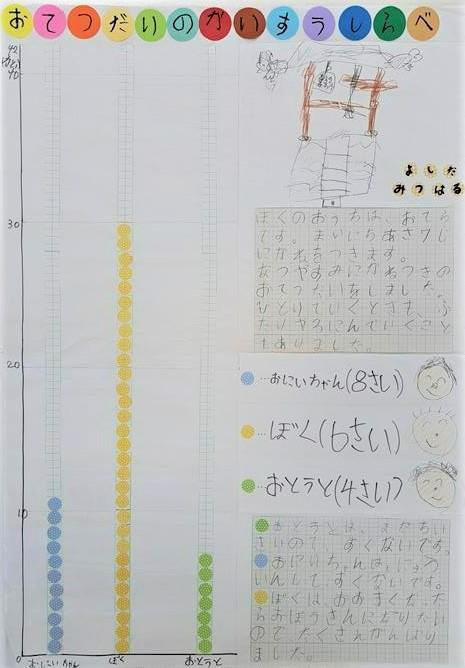 おてつだいのかいすうしらべ
40
30
20
10
0
おにいちゃん
ぼく
おとうと
よしだ
みつはる
ぼくのおうちは、おてら
です。まいにちあさ7じ
にかねをつきます。
なつやすみにかねつきの
おてつだいをしました。
ひとりでいくときも、ふ
たりや3にんでいくこと
もありました。
…おにいちゃん(8さい)
…ぼく(6さい)
…おとうと(4さい)
おとうとは、まだちい
さいので、すくないです。
おにいちゃんは、にゅう
いんしてすくないです。
ぼくは、おおきくなった
らおぼうさんになりたい
ので、たくさんがんばり
ました。